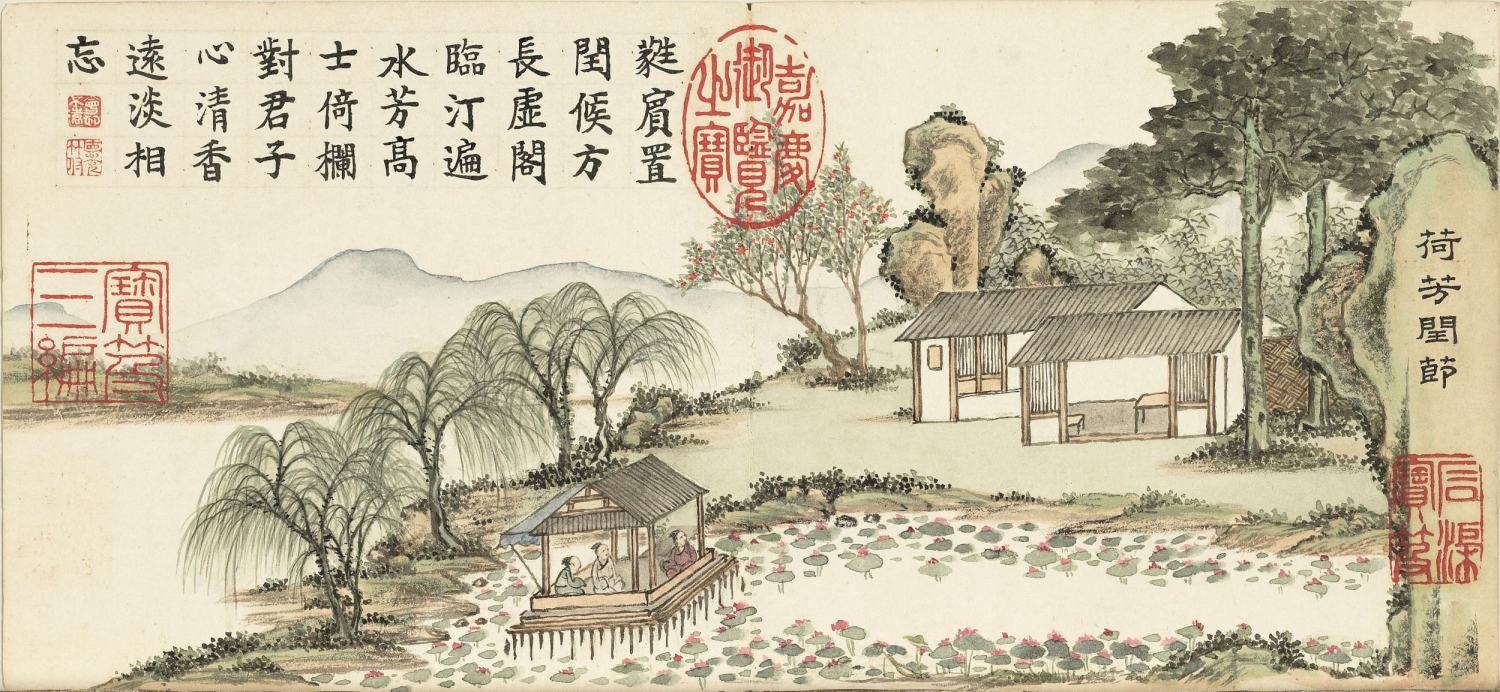 荷芳閏節
蕤賓置
閏候方
長虛閣
臨汀遍
水芳高
士倚欄
對君子
心清香
遠淡相
忘
嘉慶
御覽
之寶
寶笈
三編